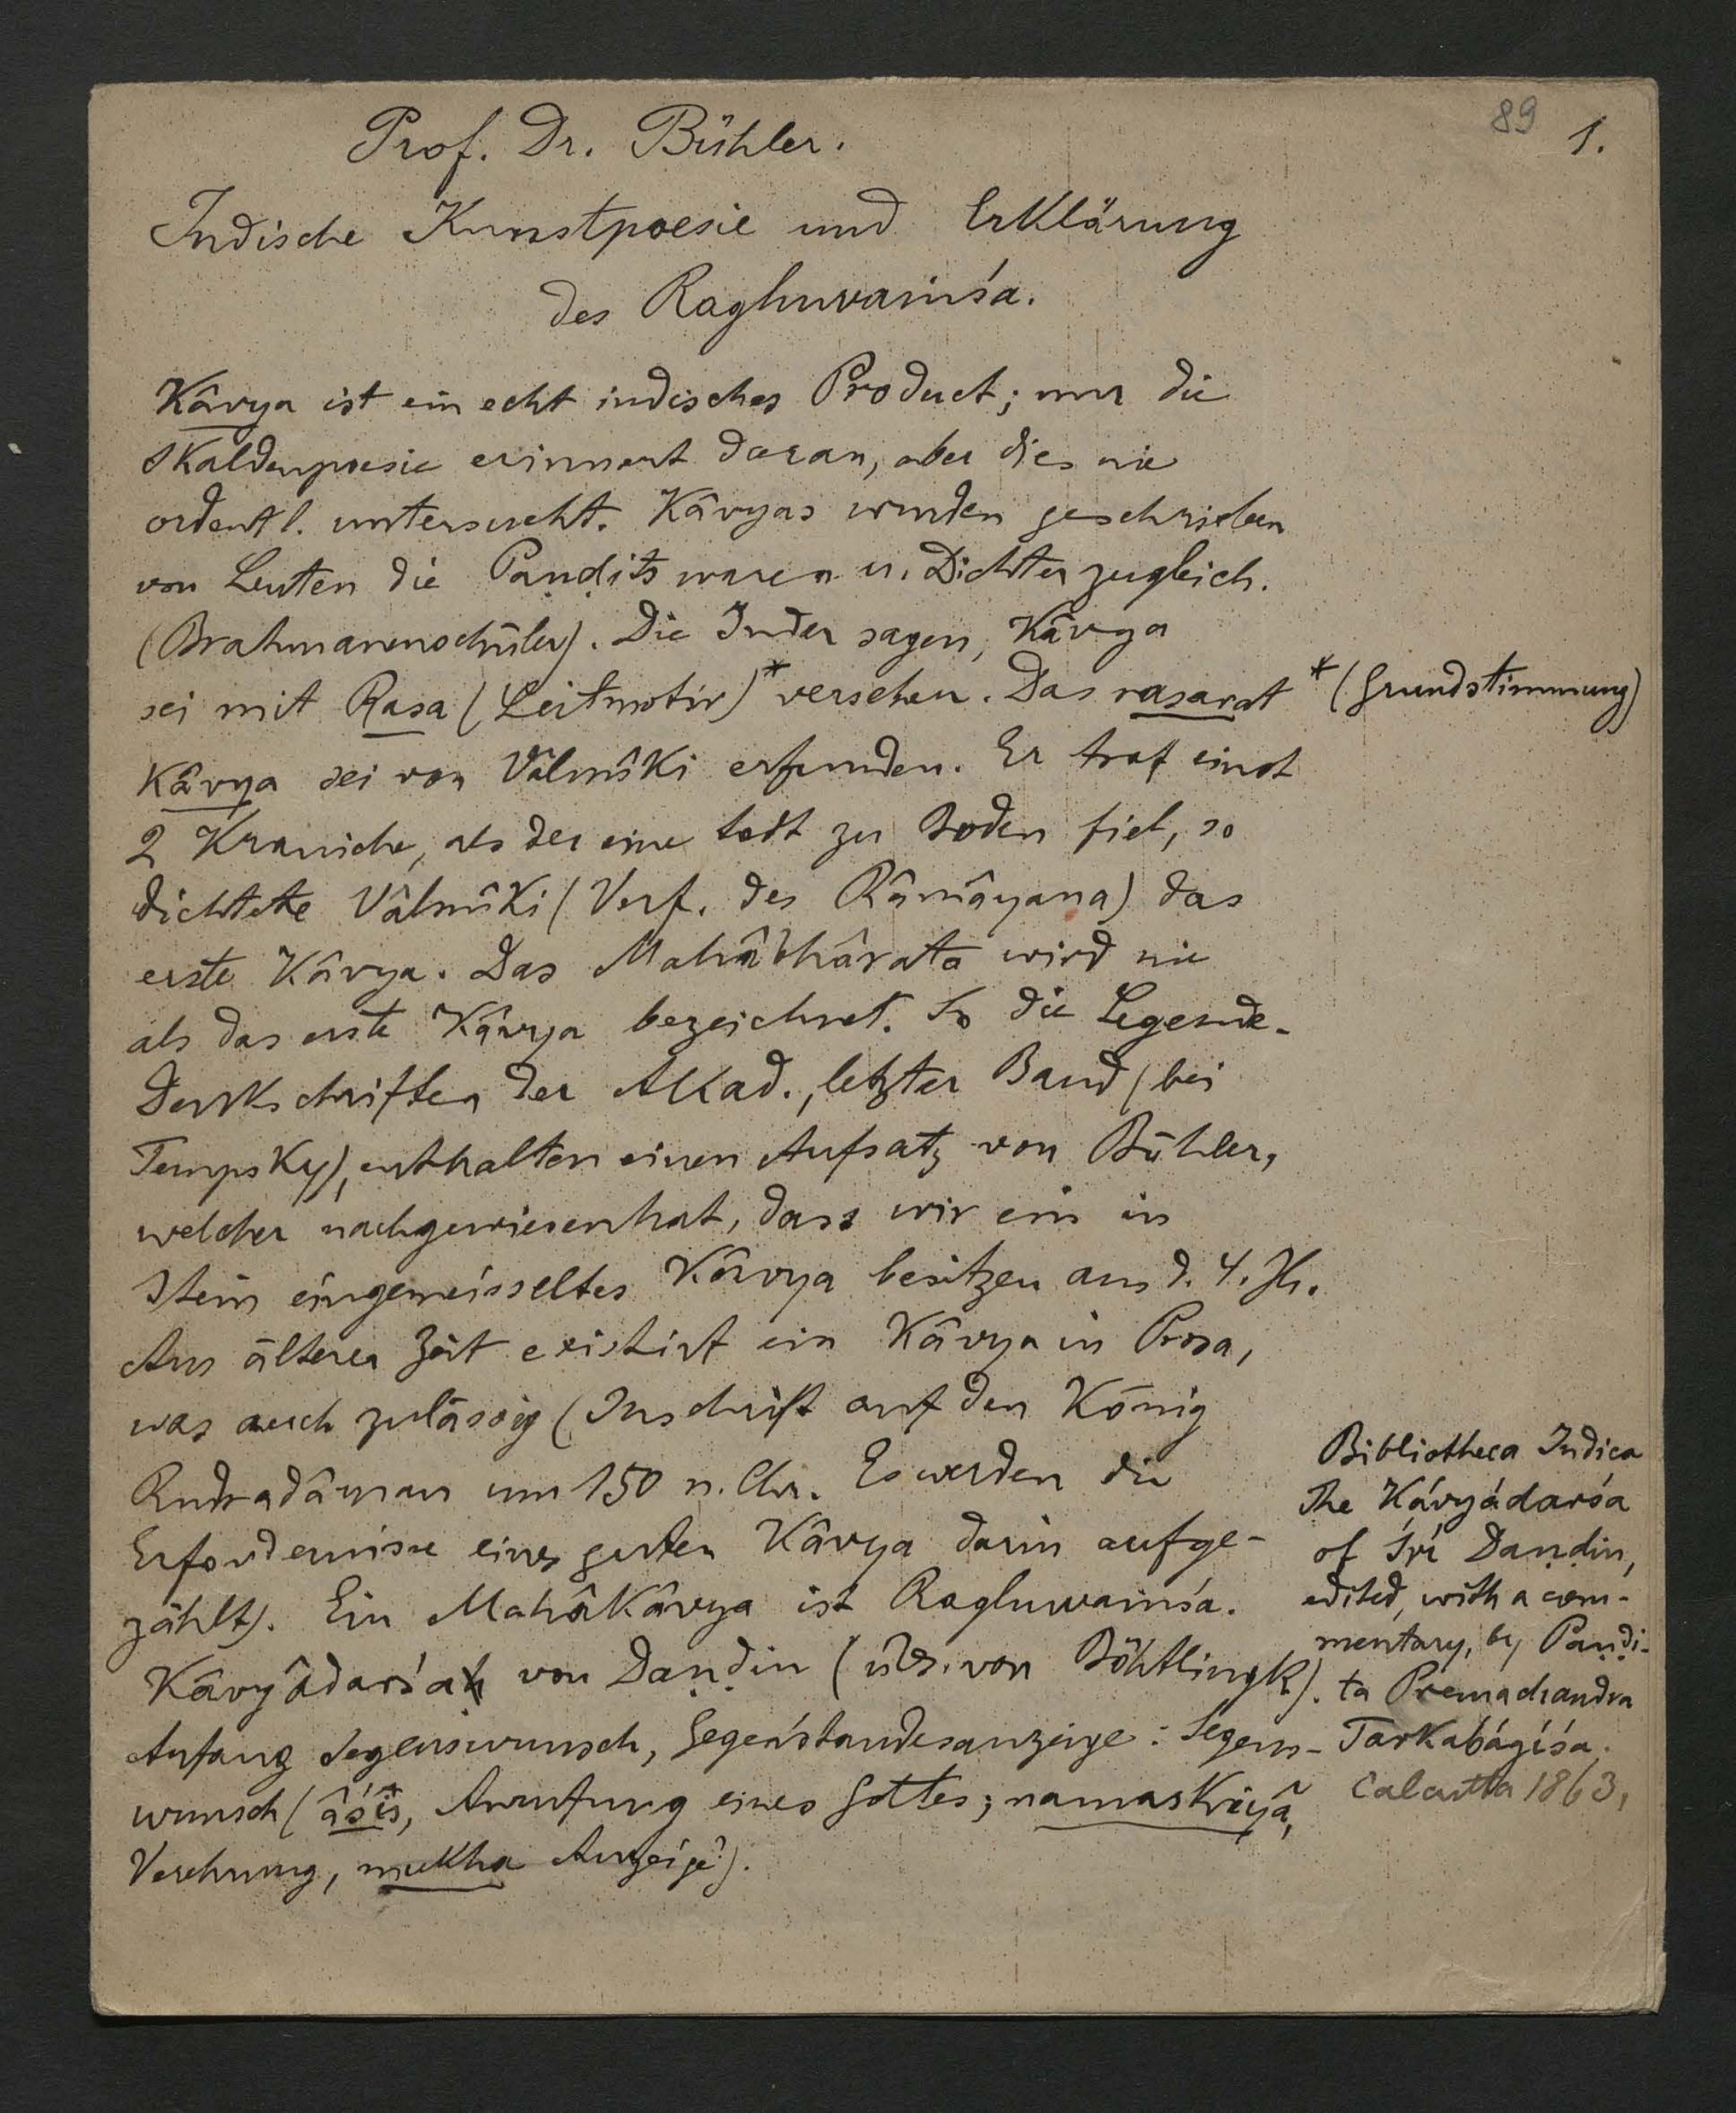 89 1.
Prof. Dr. Bühler.
Indische Kunstpoesie und Erklärung
des Raghuvaṁśa.
Kâvya ist ein echt indisches Product; nur die
Skaldenpoesie erinnert daran, aber dies nie
ordentl. untersucht. Kâvyas wurden geschrieben
von Leuten die Paṇḍits waren u. Dichter zugleich.
(Brahmanenschüler). Die Inder sagen, Kâvya
sei mit Rasa (Leitmotiv)* versehen. Das rasavat
*(Grundstimmung)
Kâvya sei von Vâlmîki erfunden. Er traf einst
2 Kraniche, als der eine todt zu Boden fiel, so
dichtete Vâlmîki (Verf. des Râmâyana) das
erste Kâvya. Das Mahâbhârata wird nie
als das erste Kâvya bezeichnet. So die Legende.
Denkschriften der Akad., letzter Band (bei
Tempsky), enthalten einen Aufsatz von Bühler,
welcher nachgewiesen hat, dass wir ein in
Stein eingemeisseltes Kâvya besitzen aus d. 4. Jh.
Aus älterer Zeit existirt ein Kâvya in Prosa,
was auch zulässig (Inschrift auf den König
Rudradâman um 150 n. Chr. Es werden die
Erfordernisse eines guten Kâvya darin aufge-
zählt). Ein Mahâkâvya ist Raghuvaṁśa.
Kâvyâdarśa von Daṇḍin (übs. von Böhtlingk).
Anfang Segenswunsch, Gegenstandesanzeige: Segens-
wunsch (âśis, Anrufung eines Gottes; namaskriyâ,
Verehrung, mukha Anzeige).
Bibliotheca Indica
The Kávyádarśa
of Śrí Daṇḍin,
edited, with a com-
mentary, by Paṇḍi-
ta Premachandra
Tarkabágíśa.
Calcutta 1863,